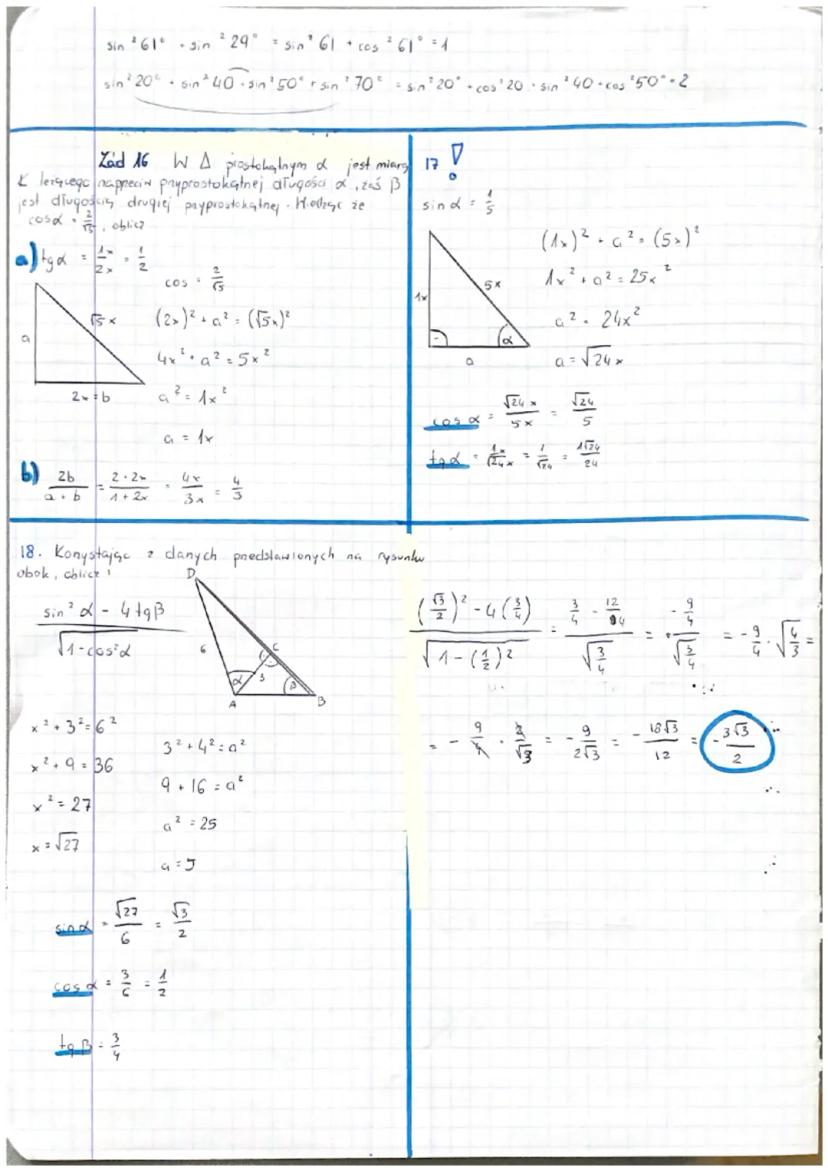 sin² 61° + sin² 29° = sin² 61 + cos² 61° = 1
sin² 20° + sin² 40 + sin² 50° + sin² 70° = sin² 20° + cos² 20 + sin² 40 + cos² 50° = 2
Zad 16 W Δ prostokątnym α jest miarą
K leżącego naprzeciw przyprostokątnej długości α, zaś β
jest długością drugiej przyprostokątnej. Wiedząc że
cosα = 2/√5, oblicz
a) tgα = 1x/2x = 1/2
cos = 2/√5
a
√5 x
2x = b
(2x)² + a² = (√5x)²
4x² + a² = 5x²
a² = 1x²
a = 1x
b) 2b/(a + b) = 2·2x/(1 + 2x) = 4x/3x = 4/3
17 !
sin α = 1/5
1x
5x
α
a
(1x)² + a² = (5x)²
1x² + a² = 25x²
a² = 24x²
a = √24 x
cos α = √24 x/5x = √24/5
tg α = 1x/√24x = 1/√24 = 1√24/24
18. Korzystając z danych przedstawionych na rysunku
obok, oblicz:
(sin² α - 4tgβ)/√(1-cos²α)
D
6
C
α
3
β
A
B
x² + 3² = 6²
x² + 9 = 36
x² = 27
x = √27
3² + 4² = a²
9 + 16 = a²
a² = 25
a = 5
sin α = √27/6 = √3/2
cos α = 3/6 = 1/2
tg β = 3/4
((√3/2)² - 4(3/4))/√(1-(1/2)²) = (3/4 - 12/4)/√(3/4) = (-9/4)/√(3/4) = -9/4 · √(4/3) =
= -9/4 · 2/√3 = -9/2√3 = -18√3/12 = -3√3/2